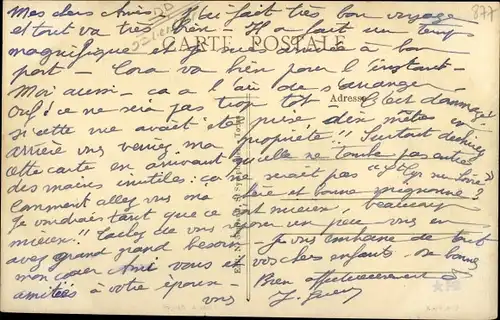 Mes chers Amis, J'ai fait très bon voyage
et tout va très bien - Il a fait un temps
magnifique et je suis arrivée à bon
port - Cora va bien pour l'instant -
Moi aussi - ça a l'air de s'arranger
Ouf! ce ne sera pas trop tôt C'est dommage!
si cette vue avait été prise dix mètres en
arrière vous verriez ma propriété!! Surtout déchirez
cette carte en arrivant qu'elle ne tombe pas entre
des mains inutiles: ça ne serait pas
Comment allez vous ma chérie et bonne mignonne?
Je voudrais tant que ce soit mieux, beaucoup
mieux!! Tachez de vous reposer un peu vous en
avez grand grand besoin - Je vous embrasse de tout
mon coeur Ami vous et vos chers enfants. de bonnes
amitiés à votre épouse - Bien affectueusement à
vous
CARTE POSTALE
Adresse
877